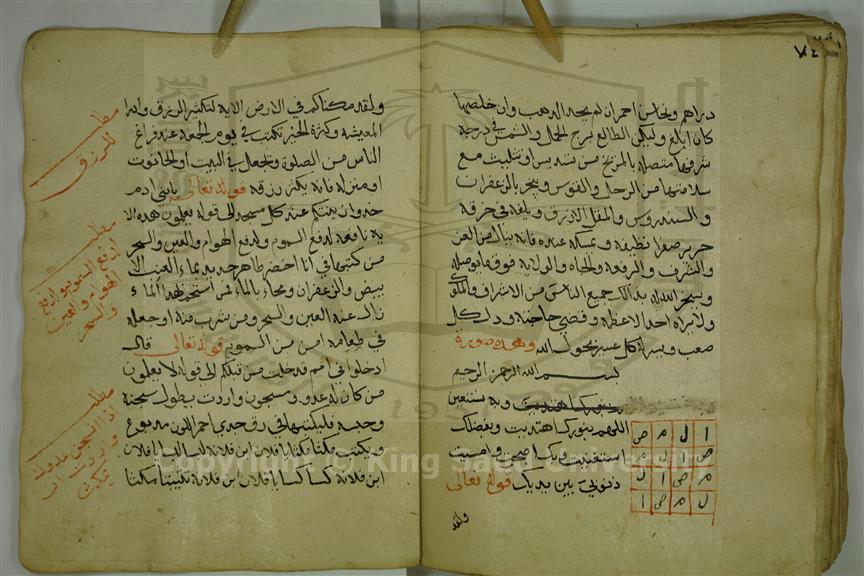 دراهم ونحاس احمر ان لم يجد الذهب وان خلصهما
كان ابلغ وليكن الطالع برج الحمل والشمس في درجة
شرفها متصلة بالمريخ من تسديس او تثليث مع
سلامتهما من الزحل والقوس ويبخر بالزعفران
و السندروس والمقل الازرق ويلفه في خرقة
حرير صفرا نظيفة و يمسكه عنده فانه ينال من العز
والشرف والرفعة والجاه والولاية فوق ما يوصله
ويسخر الله له بذالك جميع الناس من الاشراف والملوك
ولا يراه احد الا عظمه و قضي حاجته وذلل كل
صعب ويسر له كل عسير بحول الله وهذه صورة
بسم الله الرحمن الرحيم
وبه نستعين
اللهم بنورك اهتديت وبفضلك
استغنيت وبك اصبحت وامسيت
ذنوبي بين يديك قوله تعالى
ا ل م ص
ص ا ل م
م ص ا ل
ل م ص ا
ولقد
ولقد مكناكم في الارض الاية لتكثير الرزق وانه
المعيشة وكثرة الخير تكتب في يوم الجمعة عند فراغ
الناس من الصلوة وتجعل في البيت او الحانوت
او منزله فانه يكثر رزقه قوله تعالى يابني ادم
خذوا زينتكم عند كل مسجد الى قوله يعلمون هذه الا
ية نافعة لدفع السموم ولدفع الهوام والعين والسحر
من كتبها في انا اخضر طاهر جديد بماء العنب الا
بيض والزعفران ومحاه بالماء ثم استحم بهذا الماء
زال عنه العين والسحر ومن شرب منه او جعله
في طعامه امن من السموم قوله تعالى قال
ادخلوا في امم قد خلت من قبلكم الى قوله لا تعلمون
من كان له عدو ومسجون واردت بطول سجنه
وحبسه فليكتبها في رق جدي احمر اللون مدبوغ
ويكتب مكثا مكثا مكثا يا فلان ابن فلانة لبثا لبثا يا فلان
ابن فلانة كسا كسا يا فلان ابن فلانة تكتبيثا مكثا
مطلب
للرزق
مطلب
لدفع السموم ولدفع
الهوام والعين
والسحر
مطلب
اذا سجن عدوك
واردت ان
مكث
Copyright © King Saud University
1957